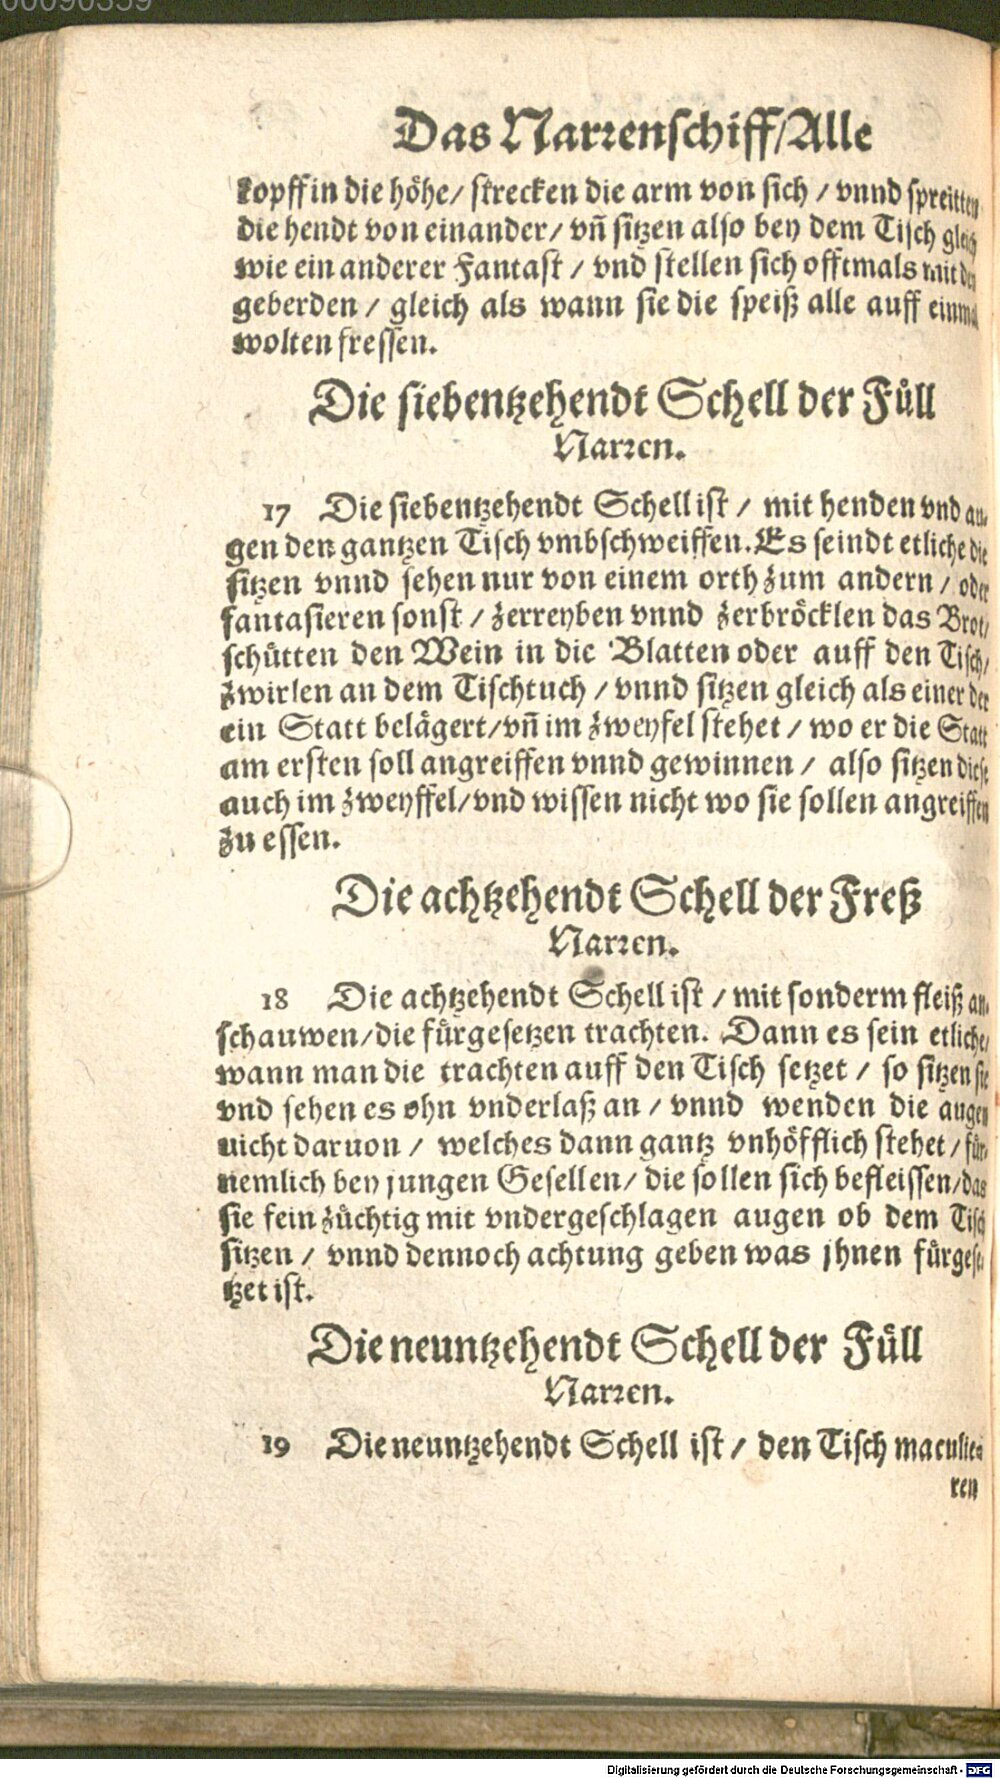 00090359
Das Narrenschiff/Alle
kopff in die höhe/ strecken die arm von sich / vnnd spreitten
die hendt von einander/ vn̄ sitzen also bey dem Tisch gleich
wie ein anderer Fantast / vnd stellen sich offtmals mit den
geberden / gleich als wann sie die speiß alle auff einmal
wolten fressen.
Die siebentzehendt Schell der Fuͤll
Narren.
17 Die siebentzehendt Schell ist / mit henden vnd au-
gen den gantzen Tisch vmbschweiffen. Es seindt etliche die
sitzen vnnd sehen nur von einem orth zum andern / oder
fantasieren sonst / zerreyben vnnd zerbröcklen das Brot/
schütten den Wein in die Blatten oder auff den Tisch/
zwirlen an dem Tischtuch / vnnd sitzen gleich als einer der
ein Statt belägert/vn̄ im zweyfel stehet / wo er die Statt
am ersten soll angreiffen vnnd gewinnen / also sitzen diese
auch im zweyffel/vnd wissen nicht wo sie sollen angreiffen
zu essen.
Die achtzehendt Schell der Freß
Narren.
18 Die achtzehendt Schell ist / mit sonderm fleiß an-
schauwen/die fuͤrgesetzen trachten. Dann es sein etliche/
wann man die trachten auff den Tisch setzet / so sitzen sie
vnd sehen es ohn vnderlaß an / vnnd wenden die augen
nicht daruon / welches dann gantz vnhöfflich stehet / fuͤr-
nemlich bey jungen Gesellen/ die sollen sich befleissen/das
sie fein zuͤchtig mit vndergeschlagen augen ob dem Tisch
sitzen / vnnd dennoch achtung geben was jhnen fuͤrgese-
tzet ist.
Die neuntzehendt Schell der Fuͤll
Narren.
19 Die neuntzehendt Schell ist / den Tisch maculie-
ren
Digitalisierung gefördert durch die Deutsche Forschungsgemeinschaft - DFG